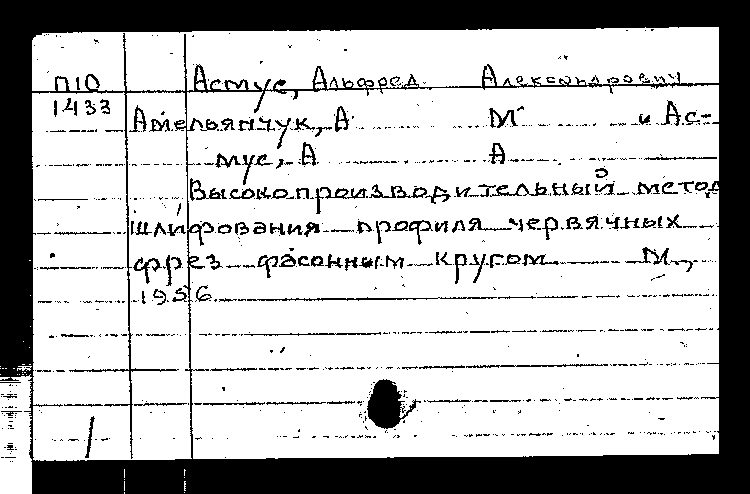 П10 Астус, Альфред Александрович
1433 Амельянчук, А М и Ас-
тус, А А
Высокопроизводительный метод
шлифования профиля червячных
фрез фасонным кругом. М.,
1956